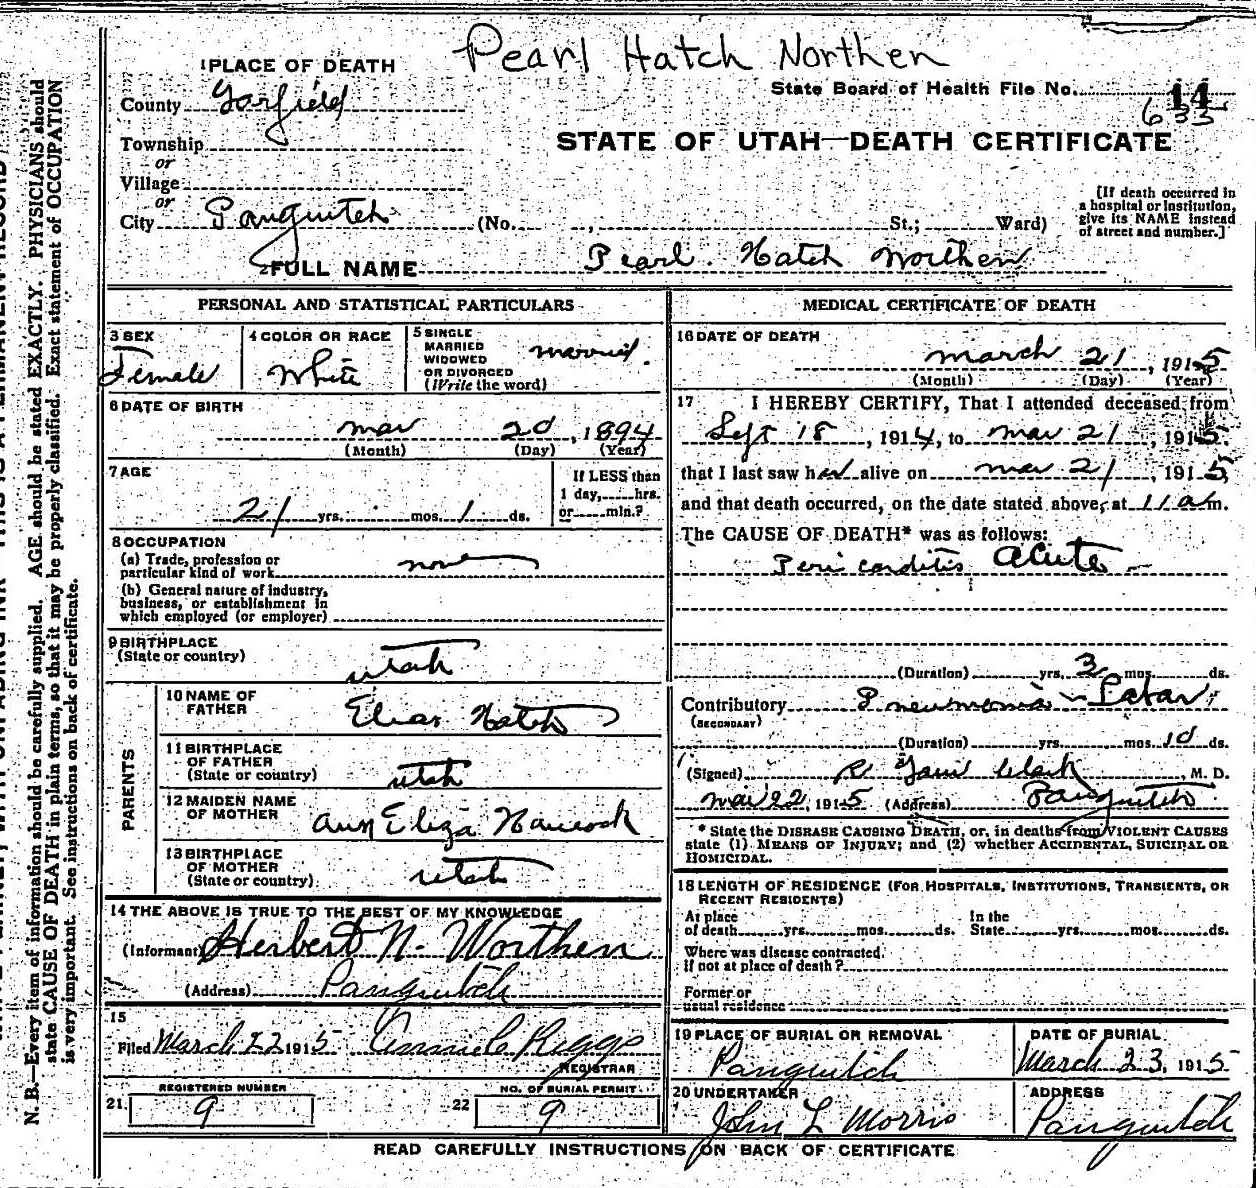 Pearl Hatch Northen
1 PLACE OF DEATH
State Board of Health File No. 14
633
County Garfield
STATE OF UTAH—DEATH CERTIFICATE
Township
or
Village
or
City Panguitch (No. , St.; Ward)
[If death occurred in a hospital or institution, give its NAME instead of street and number.]
2 FULL NAME Pearl. Hatch Worthen
PERSONAL AND STATISTICAL PARTICULARS
3 SEX Female
4 COLOR OR RACE White
5 SINGLE MARRIED WIDOWED OR DIVORCED (Write the word) married.
6 DATE OF BIRTH
mar 20, 1894
(Month) (Day) (Year)
7 AGE
21 yrs. mos. 1 ds.
If LESS than 1 day, hrs. or min.?
8 OCCUPATION
(a) Trade, profession or particular kind of work none
(b) General nature of industry, business, or establishment in which employed (or employer)
9 BIRTHPLACE (State or country) utah
PARENTS
10 NAME OF FATHER Elias Hatch
11 BIRTHPLACE OF FATHER (State or country) utah
12 MAIDEN NAME OF MOTHER Ann Eliza Hancock
13 BIRTHPLACE OF MOTHER (State or country) utah
14 THE ABOVE IS TRUE TO THE BEST OF MY KNOWLEDGE
(Informant) Herbert N. Worthen
(Address) Panguitch
15
Filed March 22 1915 REGISTRAR
REGISTERED NUMBER
21. 9
NO. OF BURIAL PERMIT
22 9
MEDICAL CERTIFICATE OF DEATH
16 DATE OF DEATH
march 21, 1915
(Month) (Day) (Year)
17 I HEREBY CERTIFY, That I attended deceased from
Sept 18, 1914, to mar 21, 1915,
that I last saw her alive on mar 21, 1915,
and that death occurred, on the date stated above, at 11 a m.
The CAUSE OF DEATH* was as follows:
Peri carditis acute
(Duration) yrs. 3 mos. ds.
Contributory (SECONDARY) Pneumonia - Lobar
(Duration) yrs. mos. 10 ds.
(Signed) R Garn Clark, M. D.
Mar 22, 1915 (Address) Panguitch
* State the DISEASE CAUSING DEATH, or, in deaths from VIOLENT CAUSES state (1) MEANS OF INJURY; and (2) whether ACCIDENTAL, SUICIDAL OR HOMICIDAL.
18 LENGTH OF RESIDENCE (FOR HOSPITALS, INSTITUTIONS, TRANSIENTS, OR RECENT RESIDENTS)
At place of death yrs. mos. ds. In the State yrs. mos. ds.
Where was disease contracted, if not at place of death?
Former or usual residence
19 PLACE OF BURIAL OR REMOVAL Panguitch
DATE OF BURIAL March 23, 1915
20 UNDERTAKER John L Morris
ADDRESS Panguitch
READ CAREFULLY INSTRUCTIONS ON BACK OF CERTIFICATE
N. B.—Every item of information should be carefully supplied. AGE should be stated EXACTLY. PHYSICIANS should
state CAUSE OF DEATH in plain terms, so that it may be properly classified. Exact statement of OCCUPATION
is very important. See instructions on back of certificate.